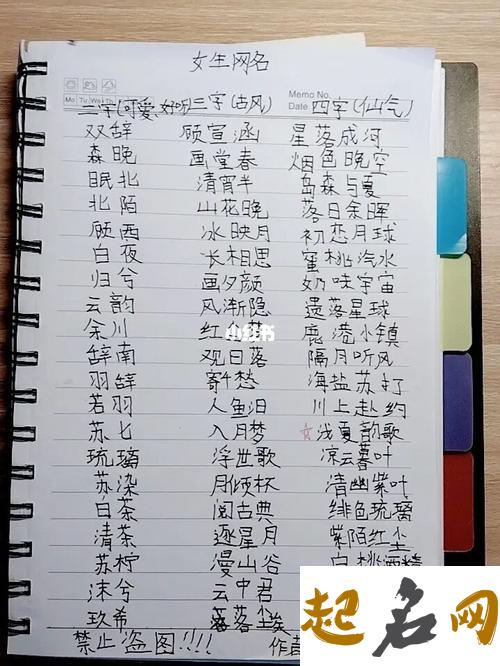 女生网名
Mo Tu We Th Memo No.
Date
二字(可爱、好听) 三字(古风) 四字(仙气)
双辞 顾宣涵 星落成河
森晚 画堂春 烟色晚空
眠北 清宵半 岛森与夏
北陌 山花晚 落日余晖
顾西 冰映月 初恋月球
白夜 长相思 蜜桃汽水
归兮 画夕颜 奶味宇宙
云韵 风渐隐 遗落星球
余川 红 鹿港小镇
小红书
辞南 观日落 隔月听风
羽辞 寄千愁 海盐苏打
若羽 人鱼泪 川上赴约
苏七 入月梦 ☆浅夏韵歌
琉璃 浮世歌 凉云暮叶
苏染 月倾杯 清幽紫叶
白茶 阅古典 绯色琉璃
清茶 逐星月 紫陌红尘
苏柠 漫山谷 白桃酒精
沫兮 云中君
玖希 落尘埃
禁止盗图!!!! 作者
起名网